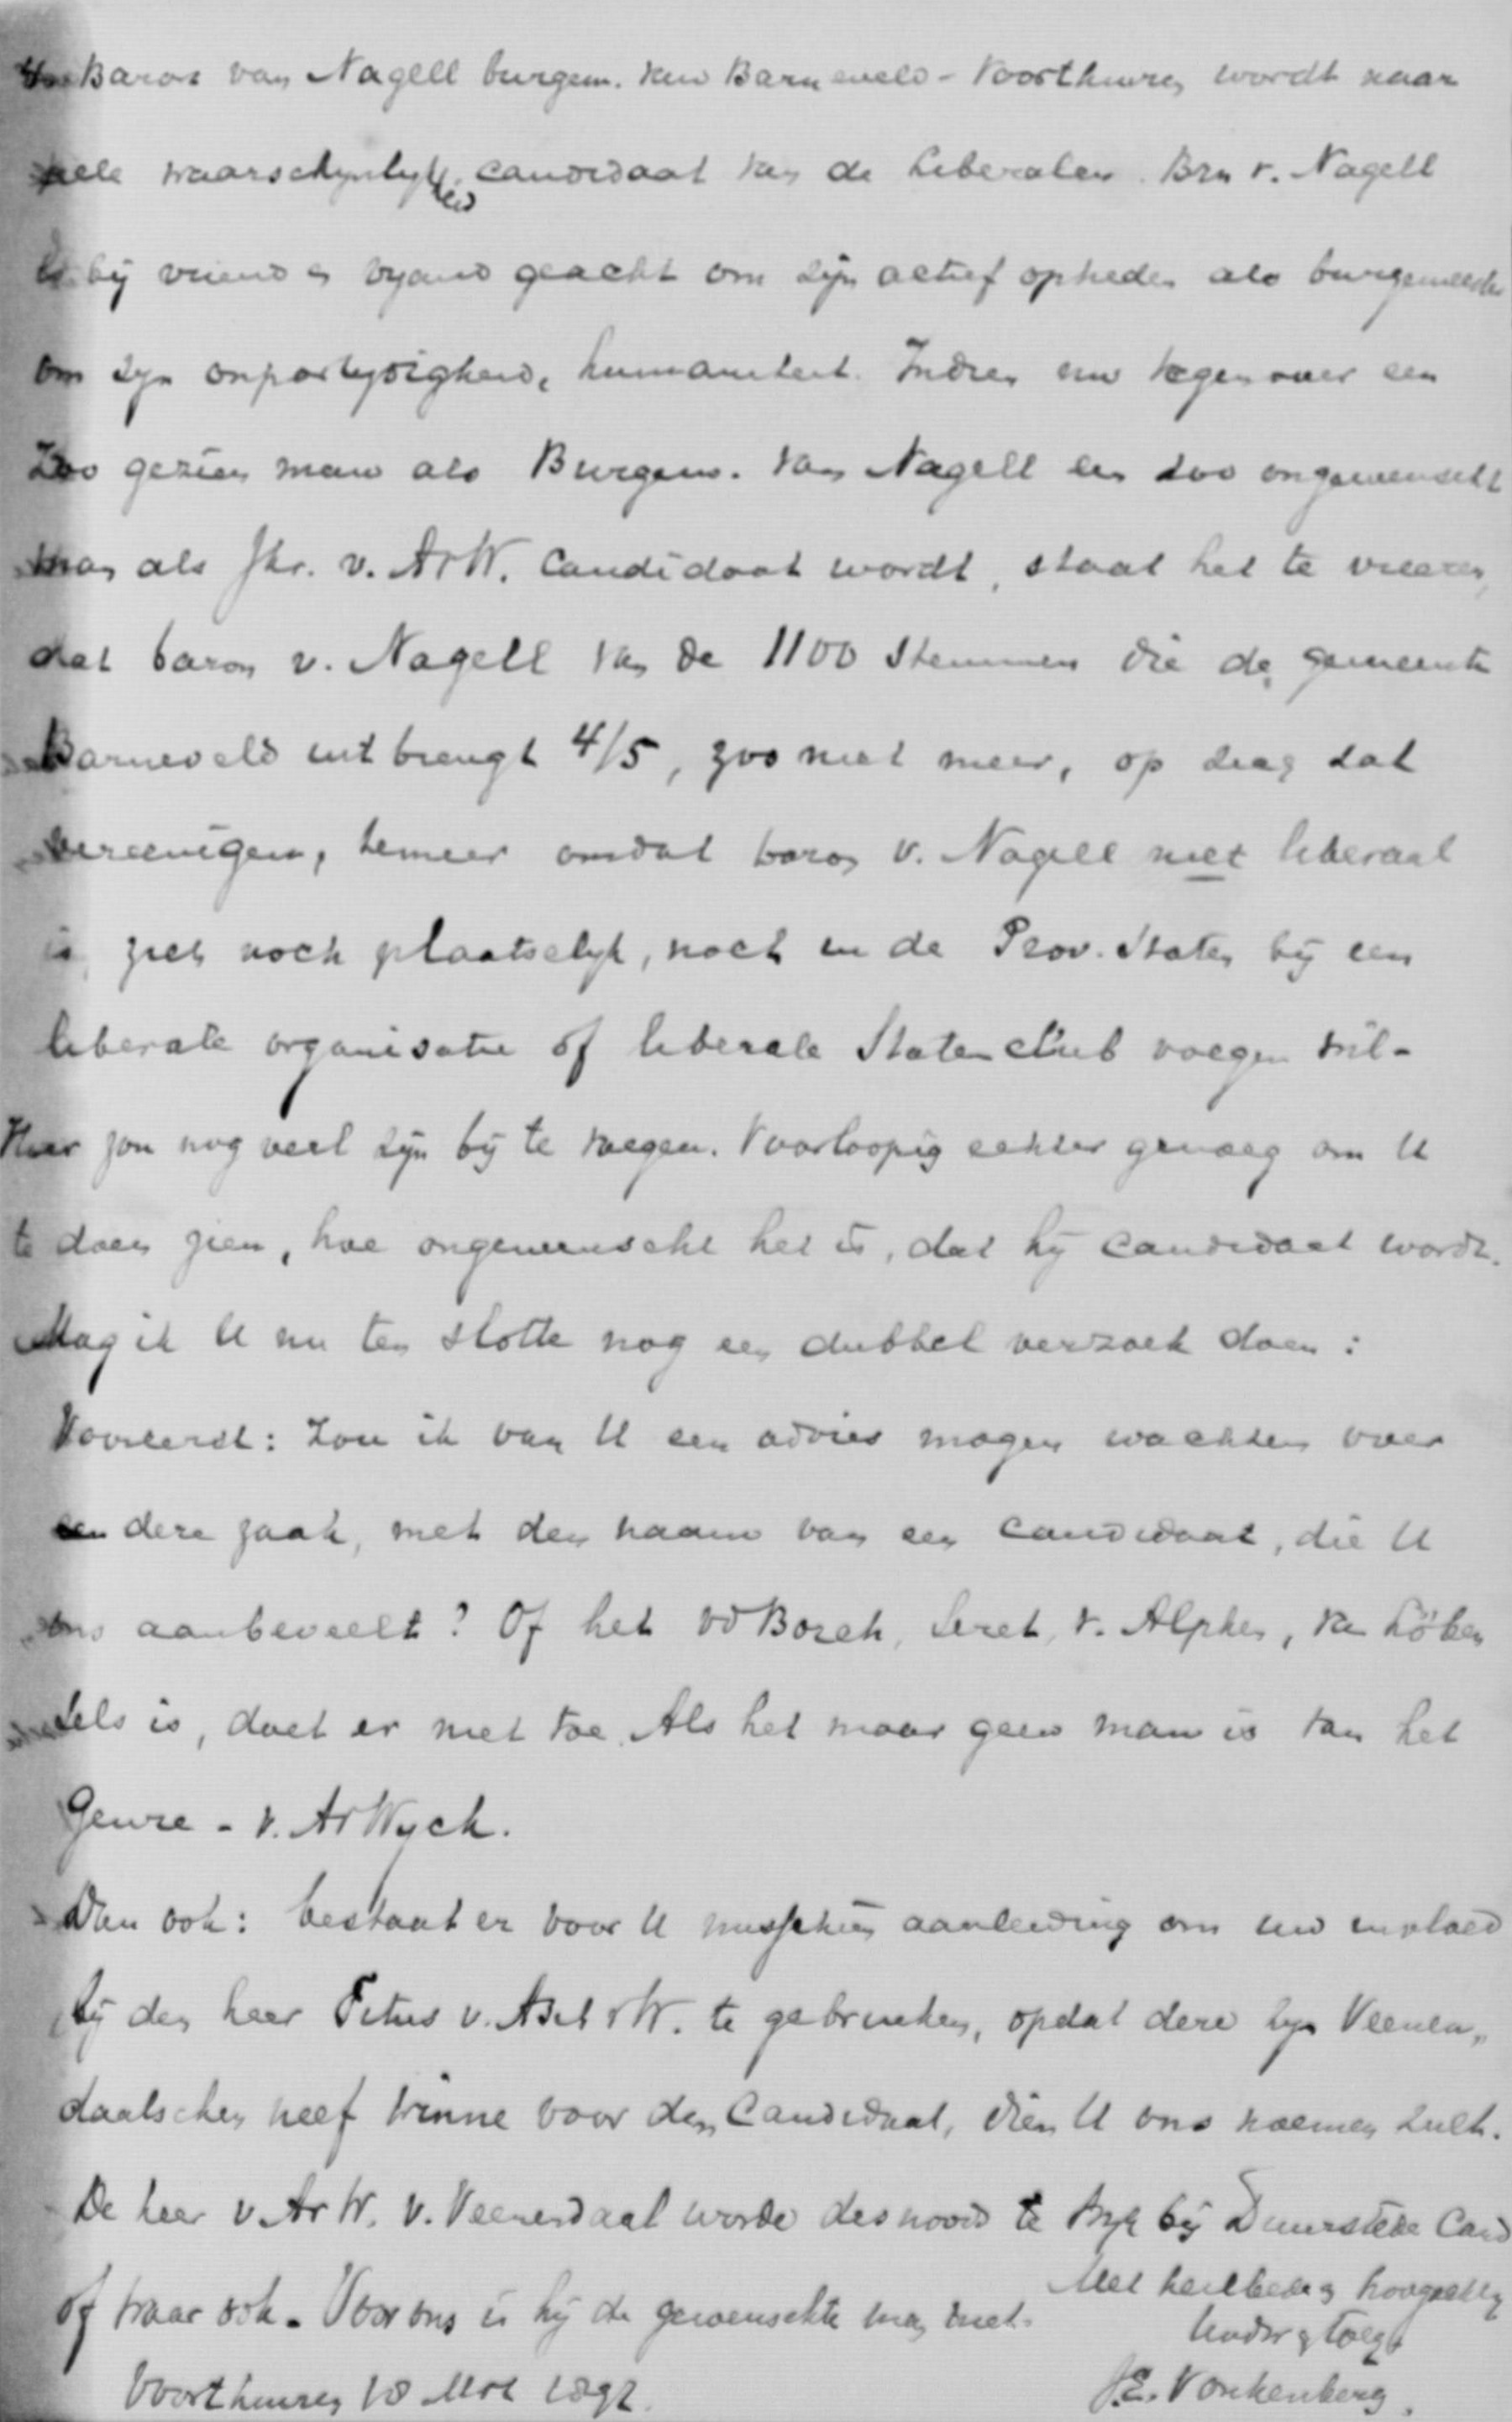 Baron van Nagell burgem. van Barneveld - Voorthuizen wordt naar
alle waarschynlykheid candidaat van de liberalen. Brn v. Nagell
is bij vriend en vyand geacht om zijn actief optreden als burgemeester
om zyn onpartydigheid, humaniteit. Indien nu tegenover een
Zoo gezien man als Burgem. van Nagell een zoo ongewenscht
man als Jhr. v. AvW. candidaat wordt, staat het te vreezen,
dat baron v. Nagell van de 1100 stemmen die de gemeente
Barneveld uitbrengt 4/5, zoo niet meer, op zich zal
vereenigen, temeer omdat baron v. Nagell niet liberaal
is, zich noch plaatselyk, noch in de Prov. Staten bij een
liberale organisatie of liberale Statenclub voegen wil -
Hier zou nog veel zijn bij te voegen. Voorloopig echter genoeg om U
te doen zien, hoe ongewenscht het is, dat hij candidaat wordt.
Mag ik U nu ten slotte nog een dubbel verzoek doen :
Vooreerst : Zou ik van U een advies mogen wachten over
deze zaak, met den naam van een candidaat, die U
ons aanbeveelt ? Of het vd Borch, Seret, v. Alphen, van Löben
Sels is, doet er niet toe. Als het maar geen man is van het
Genre - v. AvWyck.
Dan ook : bestaat er voor U misschien aanleiding om uw invloed
bij den heer Titus v. Asch v W. te gebruiken, opdat deze zyn Veenen„
daalschen neef winne voor den Candidaat, dien U ons noemen zult.
De heer v. Av W. v. Veenendaal worde desnoods te Wyk bij Duurstede Cand
of waar ook. Voor ons is hij de gewenschte man niet.
Met heilbede & hoogachting
Uwdw &
Voorthuizen 18 Mrt 1897.
J.E. Vonkenberg.